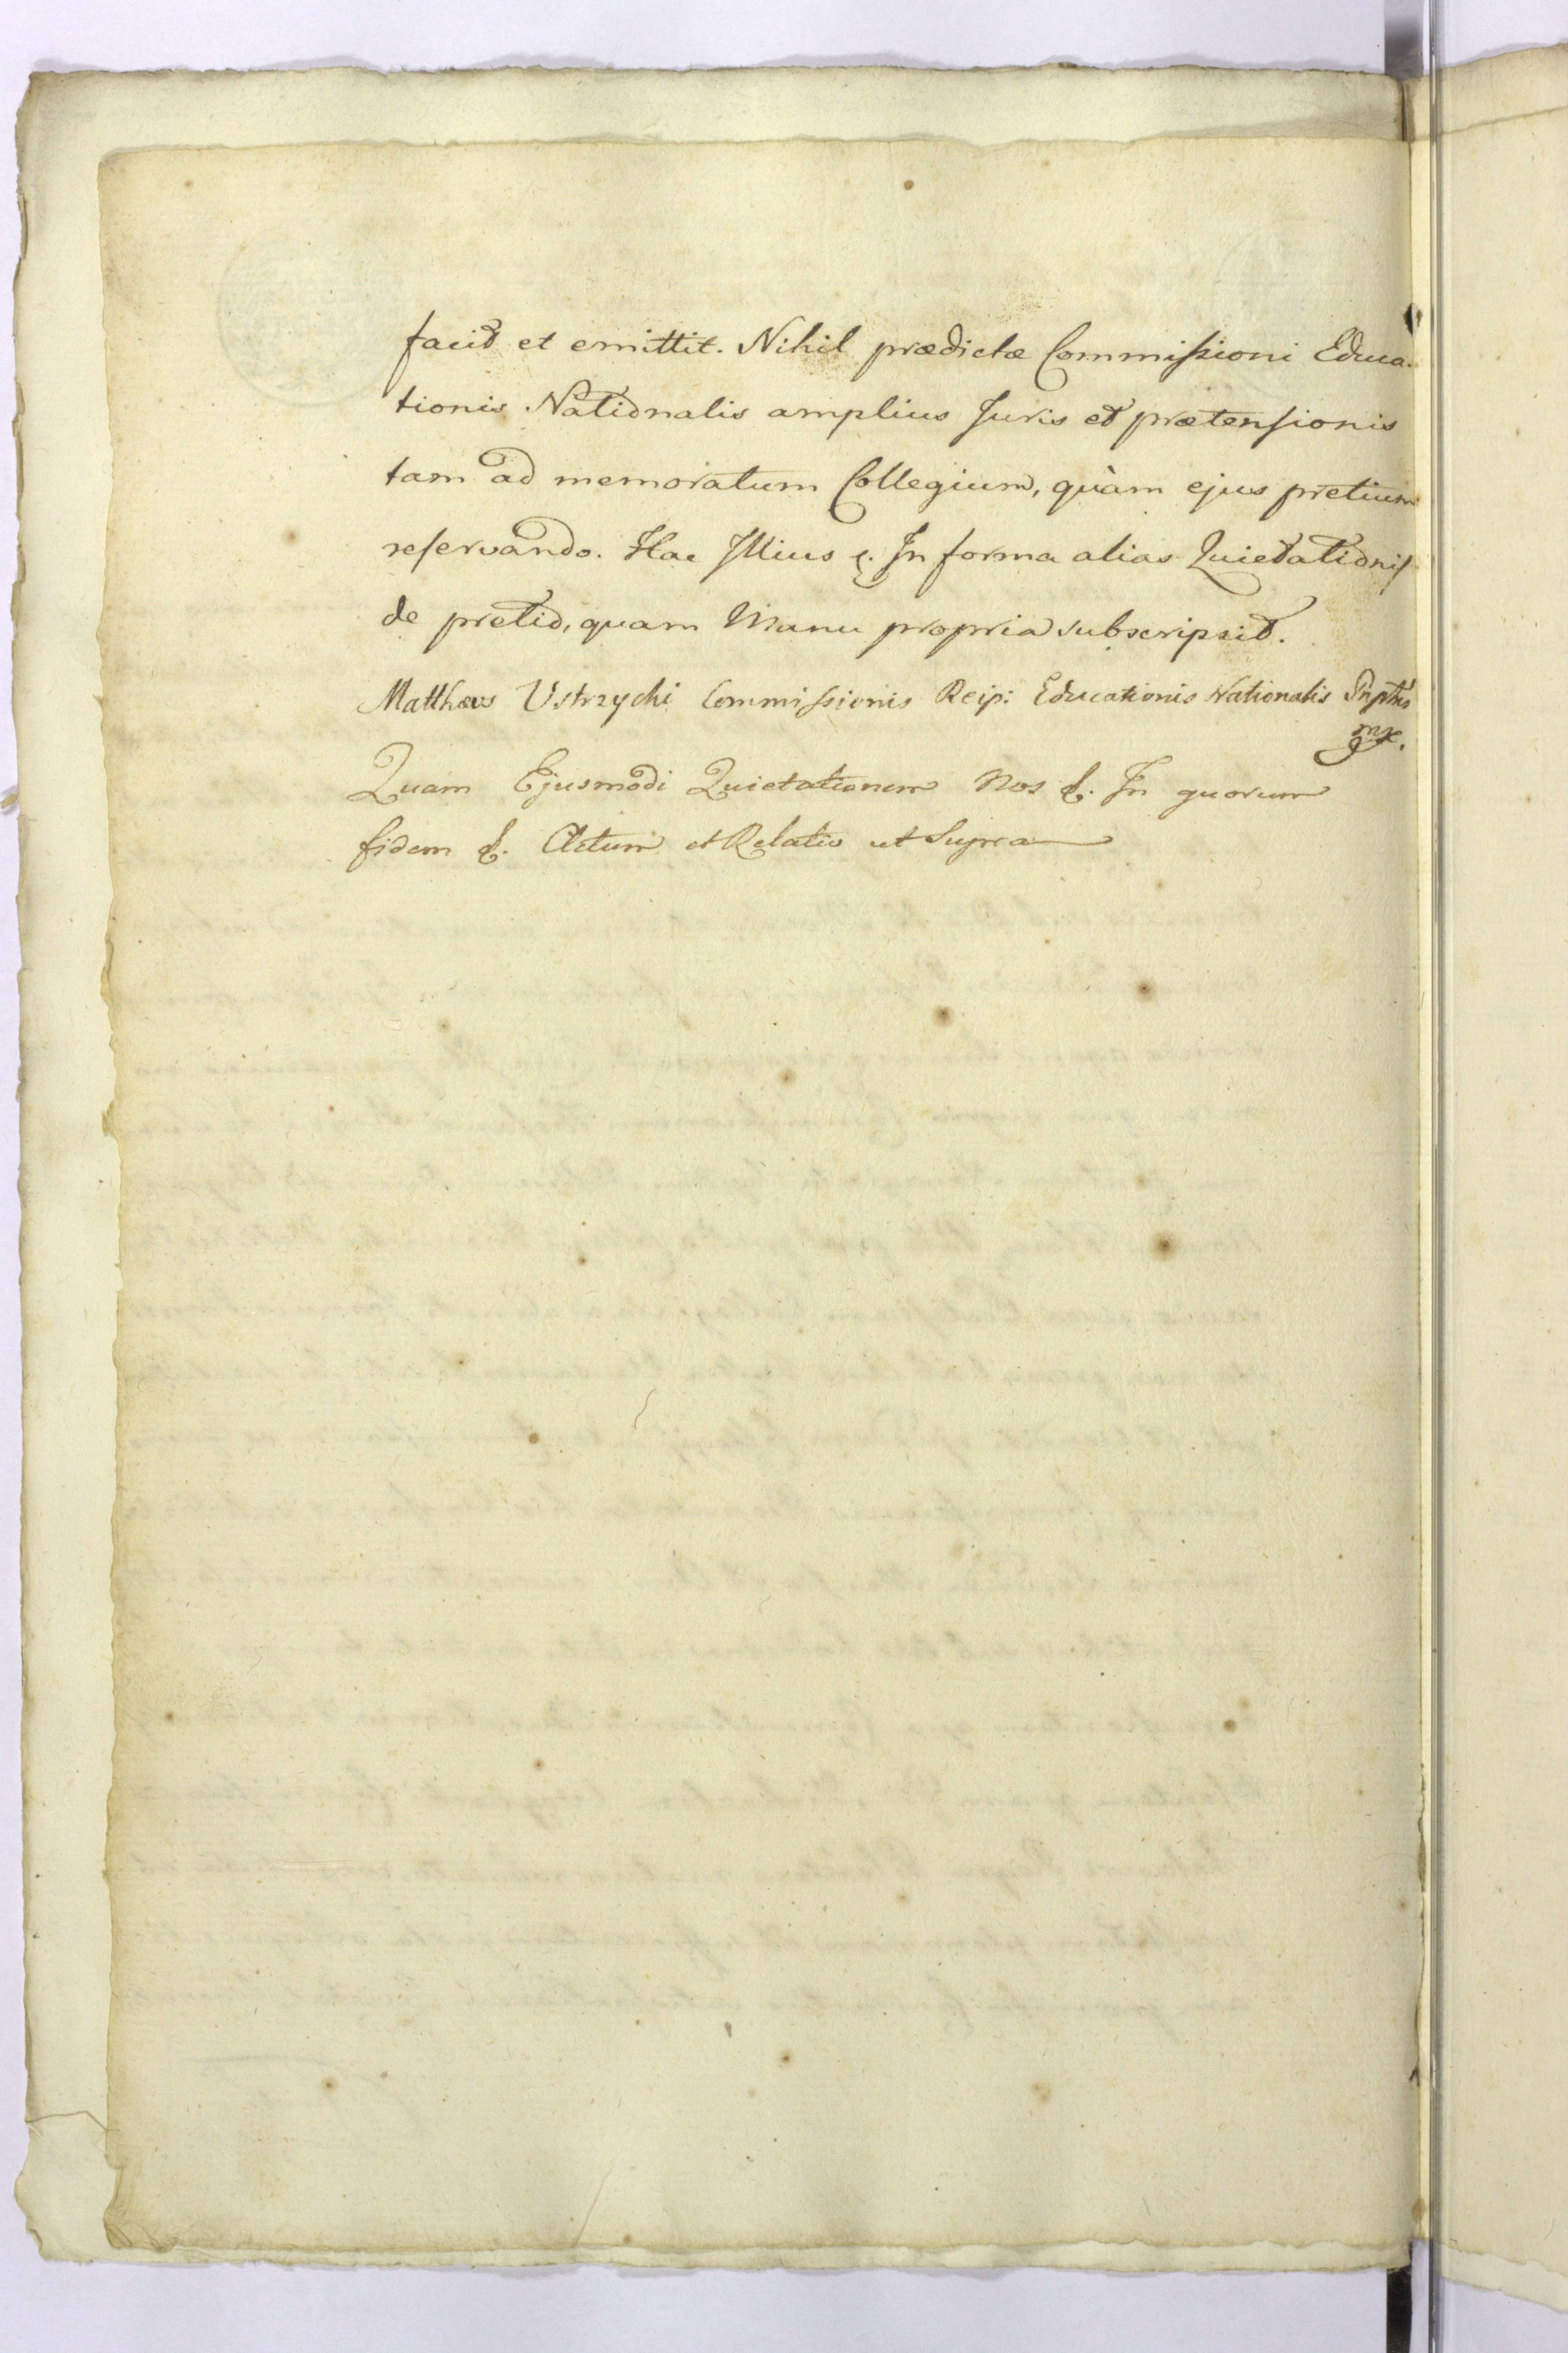 facit et emittit. Nihil prædictæ Commissioni Educa-
tionis Nationalis amplius Juris et prætensionis
tam ad memoratum Collegium, quàm ejus pretium
reservando. Hac Illius &. In forma alias Quietationis
de pretio, quam Manu propria subscripsit.
Matthæus Ustrzycki Commissionis Reip: Educationis Nationalis
Quam Ejusmodi Quietationem Nos &. In quorum
fidem &. Actum et Relatio ut Supra